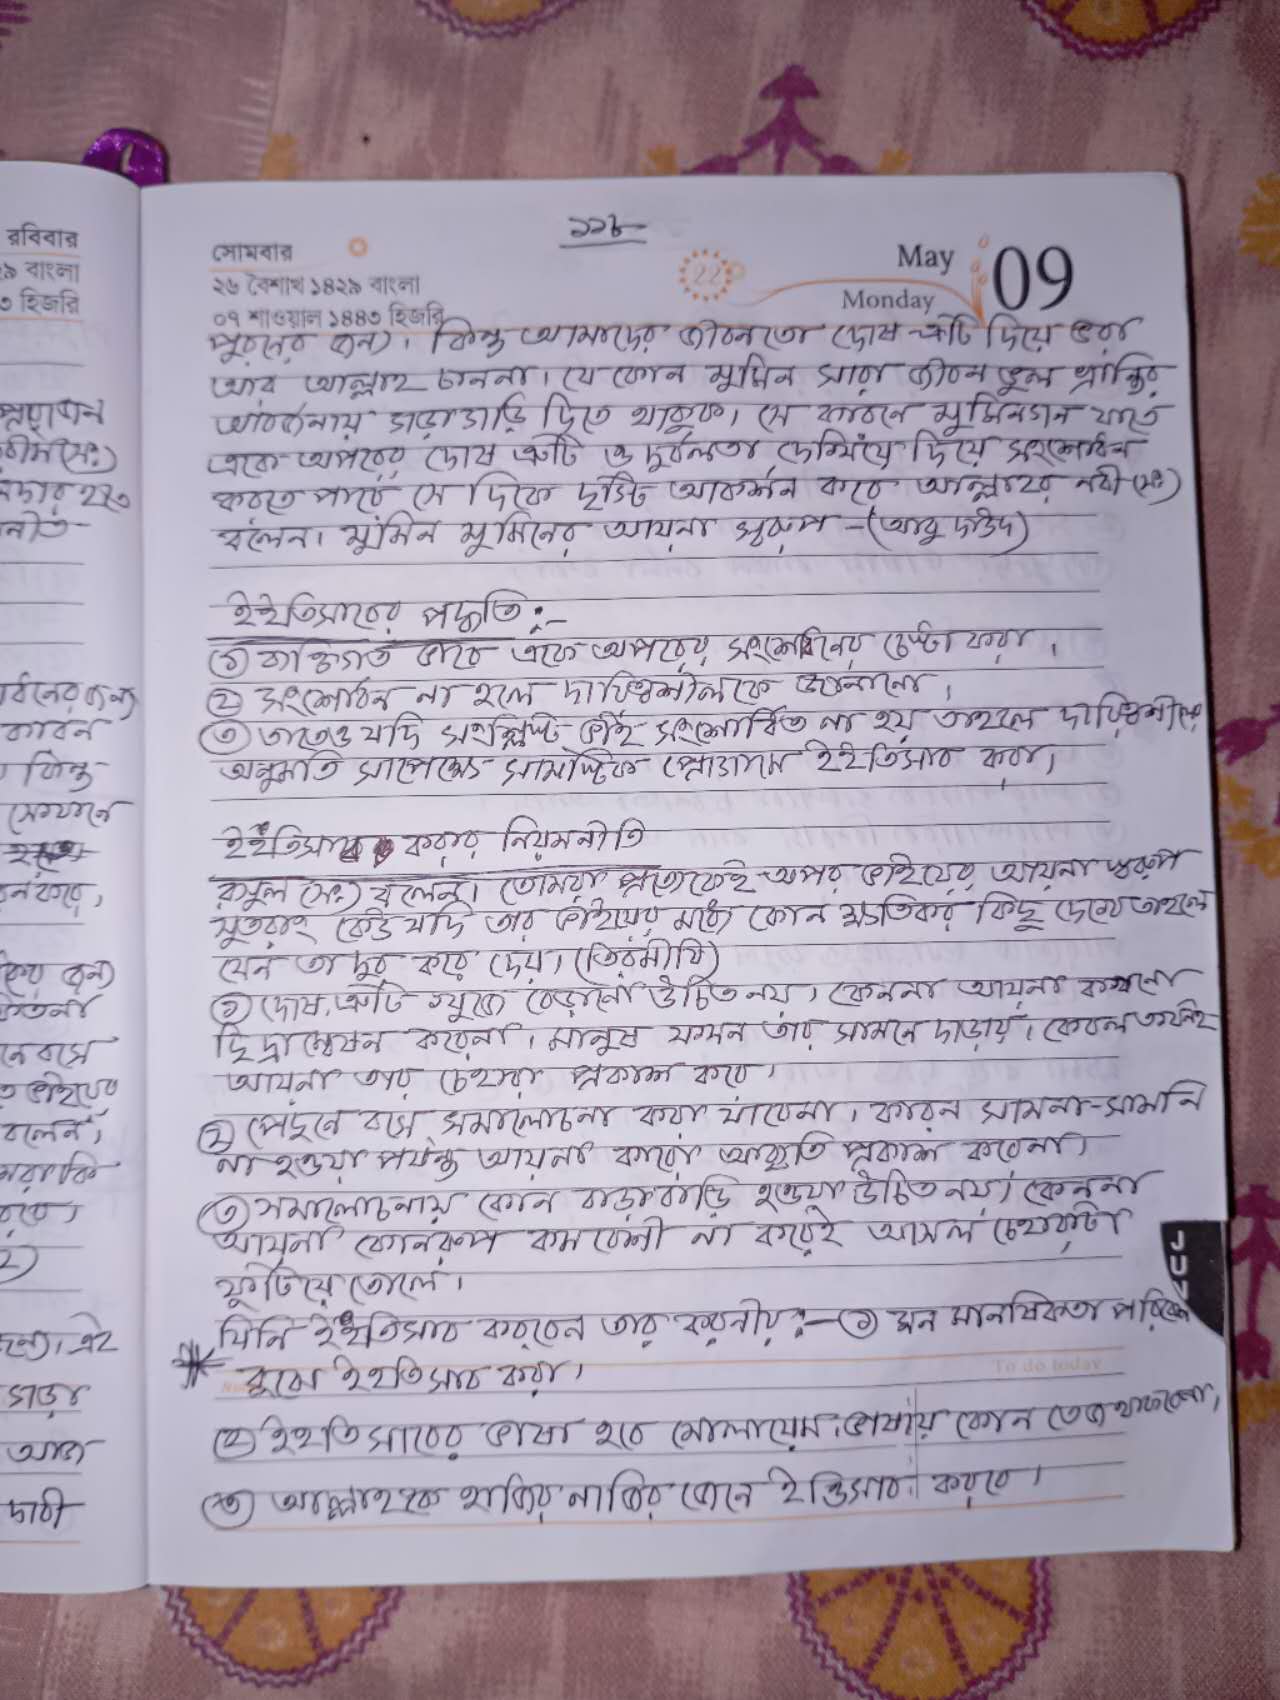 রবিবার
২৯ বাংলা
৩ হিজরি
১১৮
সোমবার
২৬ বৈশাখ ১৪২৯ বাংলা
০৭ শাওয়াল ১৪৪৩ হিজরি
22
May
Monday
09
পুরনের জন্য। কিন্তু আমাদের জীবনতো দোষ ত্রুটি দিয়ে ভরা
আর আল্লাহ চাননা। যে কোন মুমিন সারা জীবন ভুল ভ্রান্তির
আবর্জনায় গড়াগড়ি দিতে থাকুক। সে কারনে মুমিনগন যাতে
একে অপরের দোষ ত্রুটি ও দুর্বলতা দেখিয়ে দিয়ে সংশোধন
করতে পারে সে দিকে দৃষ্টি আকর্শন করে আল্লাহর নবী (সঃ)
বলেন। মুমিন মুমিনের আয়না স্বরুপ -(আবু দাউদ)
ইহতিসাবের পদ্ধতি :-
১) ব্যক্তিগত ভাবে একে অপরের সংশোধনের চেষ্টা করা।
২) সংশোধন না হলে দায়িত্বশীলকে জানানো।
৩) তাতেও যদি সংশ্লিষ্ট ভাই সংশোধিত না হয় তাহলে দায়িত্বশীলের
অনুমতি সাপেক্ষে সামষ্টিক প্রোগ্রামে ইহতিসাব করা।
ইহতিসাব করার নিয়মনীতি
রসুল (সঃ) বলেন। তোমরা প্রত্যেকেই অপর ভাইয়ের আয়না স্বরুপ
সুতরাং কেউ যদি তার ভাইয়ের মধ্যে কোন ক্ষতিকর কিছু দেখে তাহলে
যেন তা দুর করে দেয়। (তিরমীযি)
১) দোষ, ত্রুটি খুজে বেড়ানো উচিত নয়। কেননা আয়না কখনো
ছিদ্রান্বেষন করেনা। মানুষ যখন তার সামনে দাড়ায়। কেবল তখনই
আয়না তার চেহারা প্রকাশ করে।
২) পেছনে বসে সমালোচনা করা যাবেনা। কারন সামনা-সামনি
না হওয়া পর্যন্ত আয়না কারো আকৃতি প্রকাশ করেনা।
৩) সমালোচনায় কোন বাড়াবাড়ি হওয়া উচিত নয়। কেননা
আয়না কোনরুপ কমবেশী না করেই আসল চেহারাটা
ফুটিয়ে তোলে।
যিনি ইহতিসাব করবেন তার করনীয় :- ১) মন মানষিকতা পরিবেশ
বুঝে ইহতিসাব করা।
To do today
২) ইহতিসাবের ভাষা হবে মোলায়েম, ভাষায় কোন তেজ থাকবেনা,
৩) আল্লাহকে হাজির নাজির জেনে ইহতিসাব করবে।
JUN